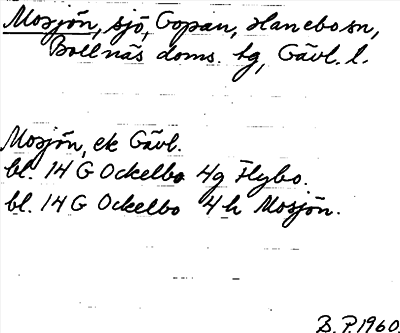 Mosjön, sjö, Gopan, Hanebo sn,
Bollnäs doms. tg, Gävl. l.
Mosjön, ek Gävl.
bl. 14 G Ockelbo 4g Flybo.
bl. 14 G Ockelbo 4h Mosjön.
B. P. 1960.